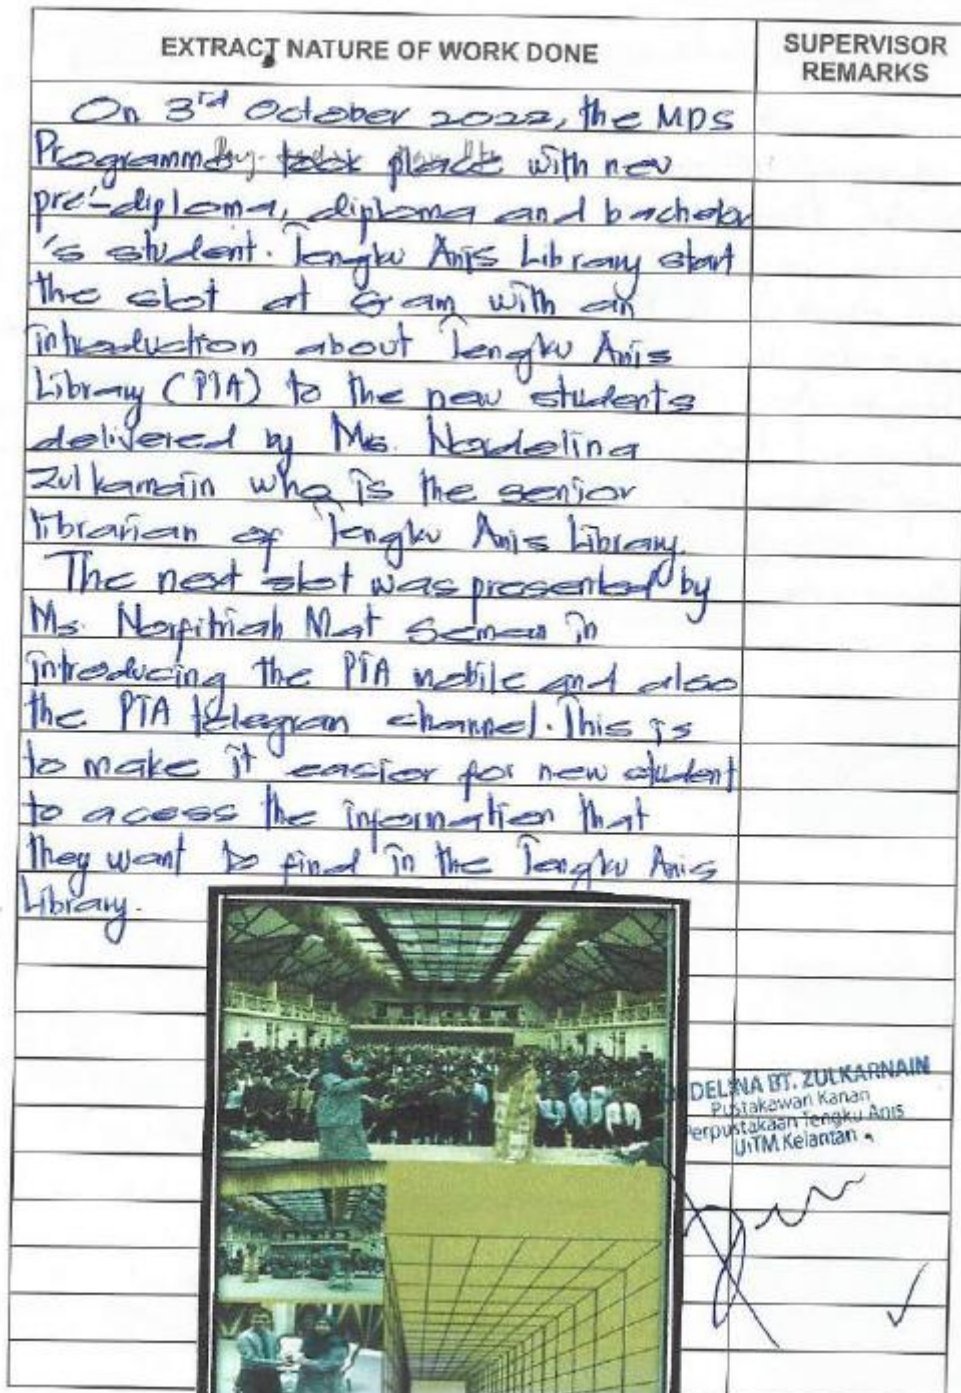 EXTRACT NATURE OF WORK DONE
SUPERVISOR
REMARKS
On 3rd October 2022, the MDS
Programme took place with new
pre-diploma, diploma and bachelor
's student. Tengku Anis Library start
the slot at am with an
introduction about Tengku Anis
Library (PTA) to the new students
delivered by Ms. Nordelina
Zulkarnain who is the senior
librarian of Tengku Anis Library.
The next slot was presented by
Ms. Norfitriah Mat Seman in
introducing the PTA mobile and also
the PTA telegram channel. This is
to make it easier for new student
to acess the information that
they want to find in the Tengku Anis
Library.
DELINA BT. ZULKARNAIN
Pustakawan Kanan
Perpustakaan Tengku Anis
UiTM Kelantan